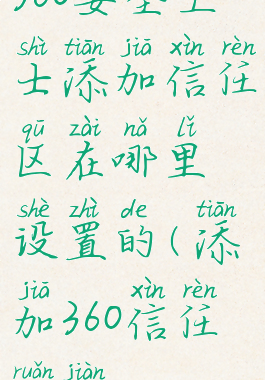 shì tiān jiā xìn rèn
士添加信任
qū zài nǎ lǐ
区在哪里
shè zhì de tiān
设置的(添
jiā xìn rèn
加360信任
ruǎn jiàn